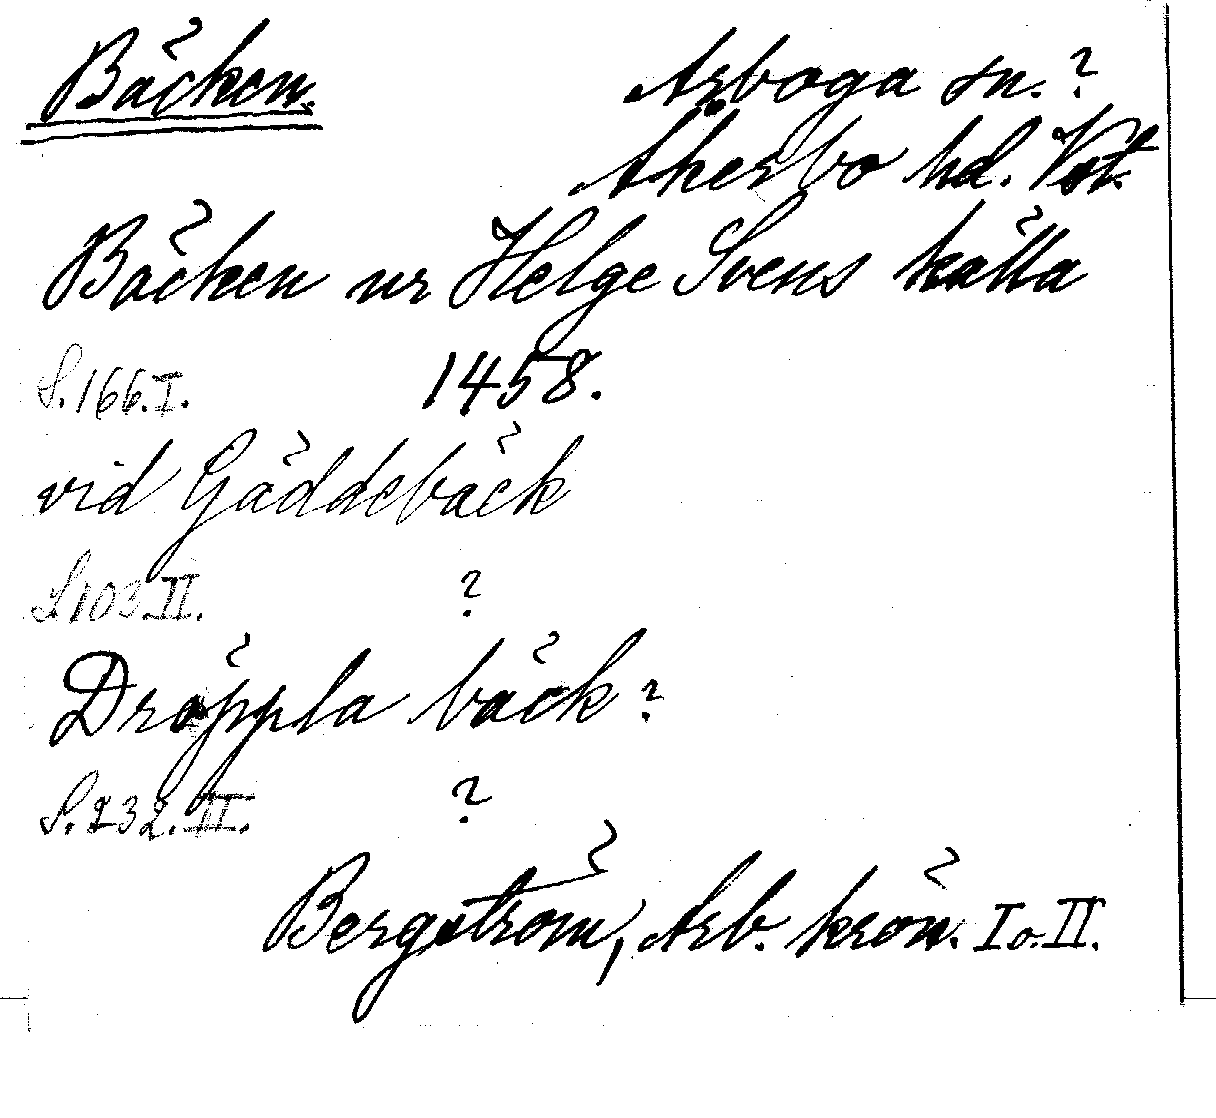 Bäcken.
Arboga sn.?
Åkerbo hd. Vst.
Bäcken ur Helge Svens källa
S. 166. I. 1458.
vid Gäddebäck
S. 103. II. ?
Dröppla bäck?
S. 232. II. ?
Bergström, Arb. krön. I o. II.